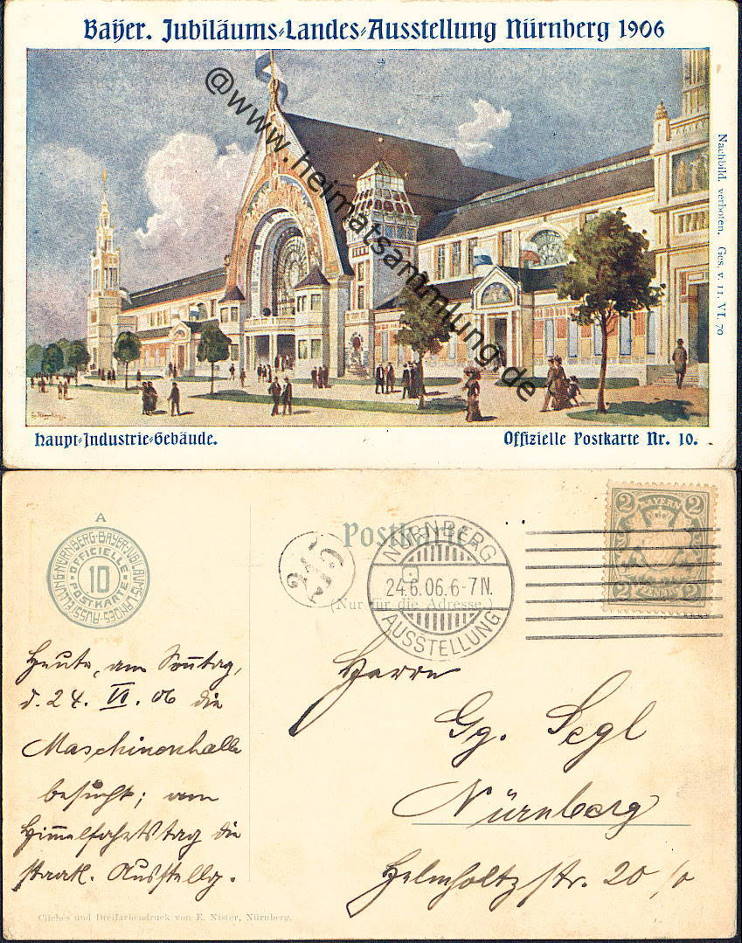 Bayer. Jubiläums-Landes-Ausstellung Nürnberg 1906
@www.heimatsammlung.de
Nachbild. verboten. Ges. v. 11. VI. 70
Haupt-Industrie-Gebäude.
Offizielle Postkarte Nr. 10.
A
NÜRNBERG-BAYER-JUBILÄUMS-LANDES-AUSSTELLUNG
OFFICIELLE
10
POSTKARTE
Postkarte
(Nur für die Adresse.)
NÜRNBERG
24.6.06.6-7N.
AUSSTELLUNG
2 2
BAYERN
PFENNIG
2 2
Heute, am Sonntag,
d. 24. VI. 06 die
Maschinenhalle
besucht; am
Himmelfahrtstag die
staatl. Ausstellg.
Herrn
Gg. Segl
Nürnberg
Helmholtzstr. 20/0
Clichés und Dreifarbendruck von E. Nister, Nürnberg.